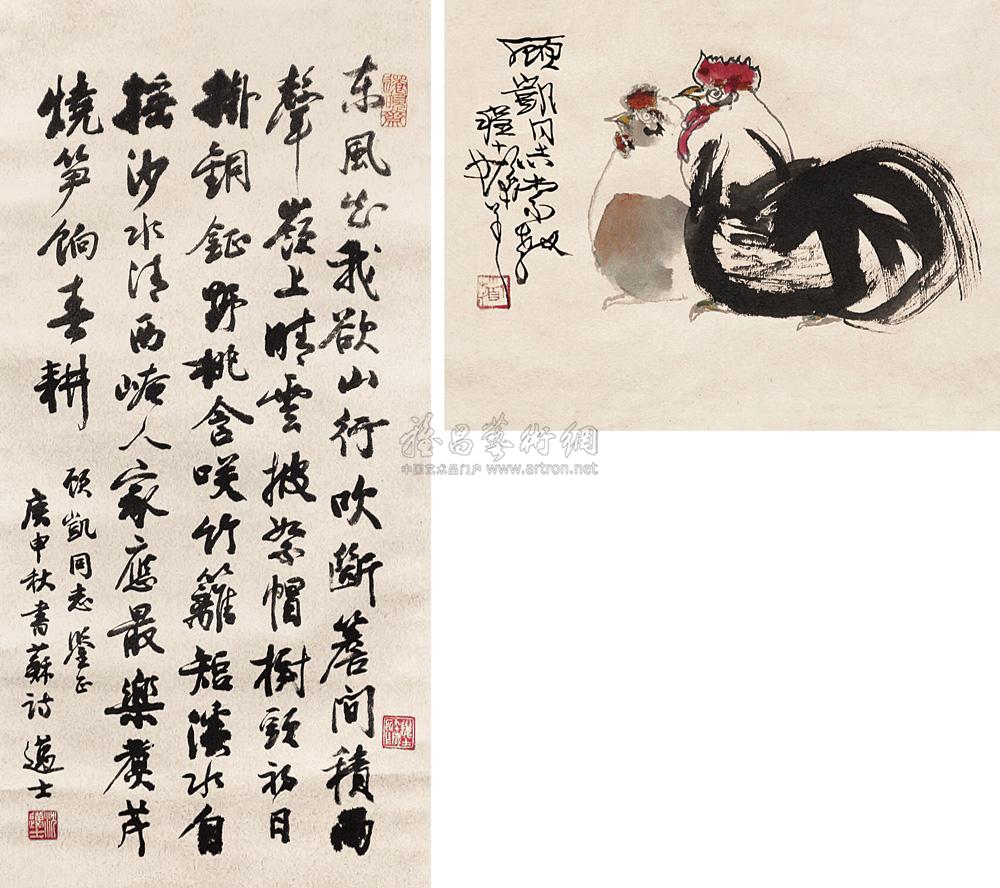 东風知我欲山行吹斷簷間積雨
聲嶺上晴雲披絮帽樹頭初日
掛銅鉦野桃含咲竹籬短溪水自
摇沙水清西崦人家應最樂煑芹
燒笋餉春耕
顾凱同志鑒正
庚申秋書蘇詩 邁士
顾凱同志索教
程十髮
雅昌藝術網
中国艺术品门户 www.artron.net